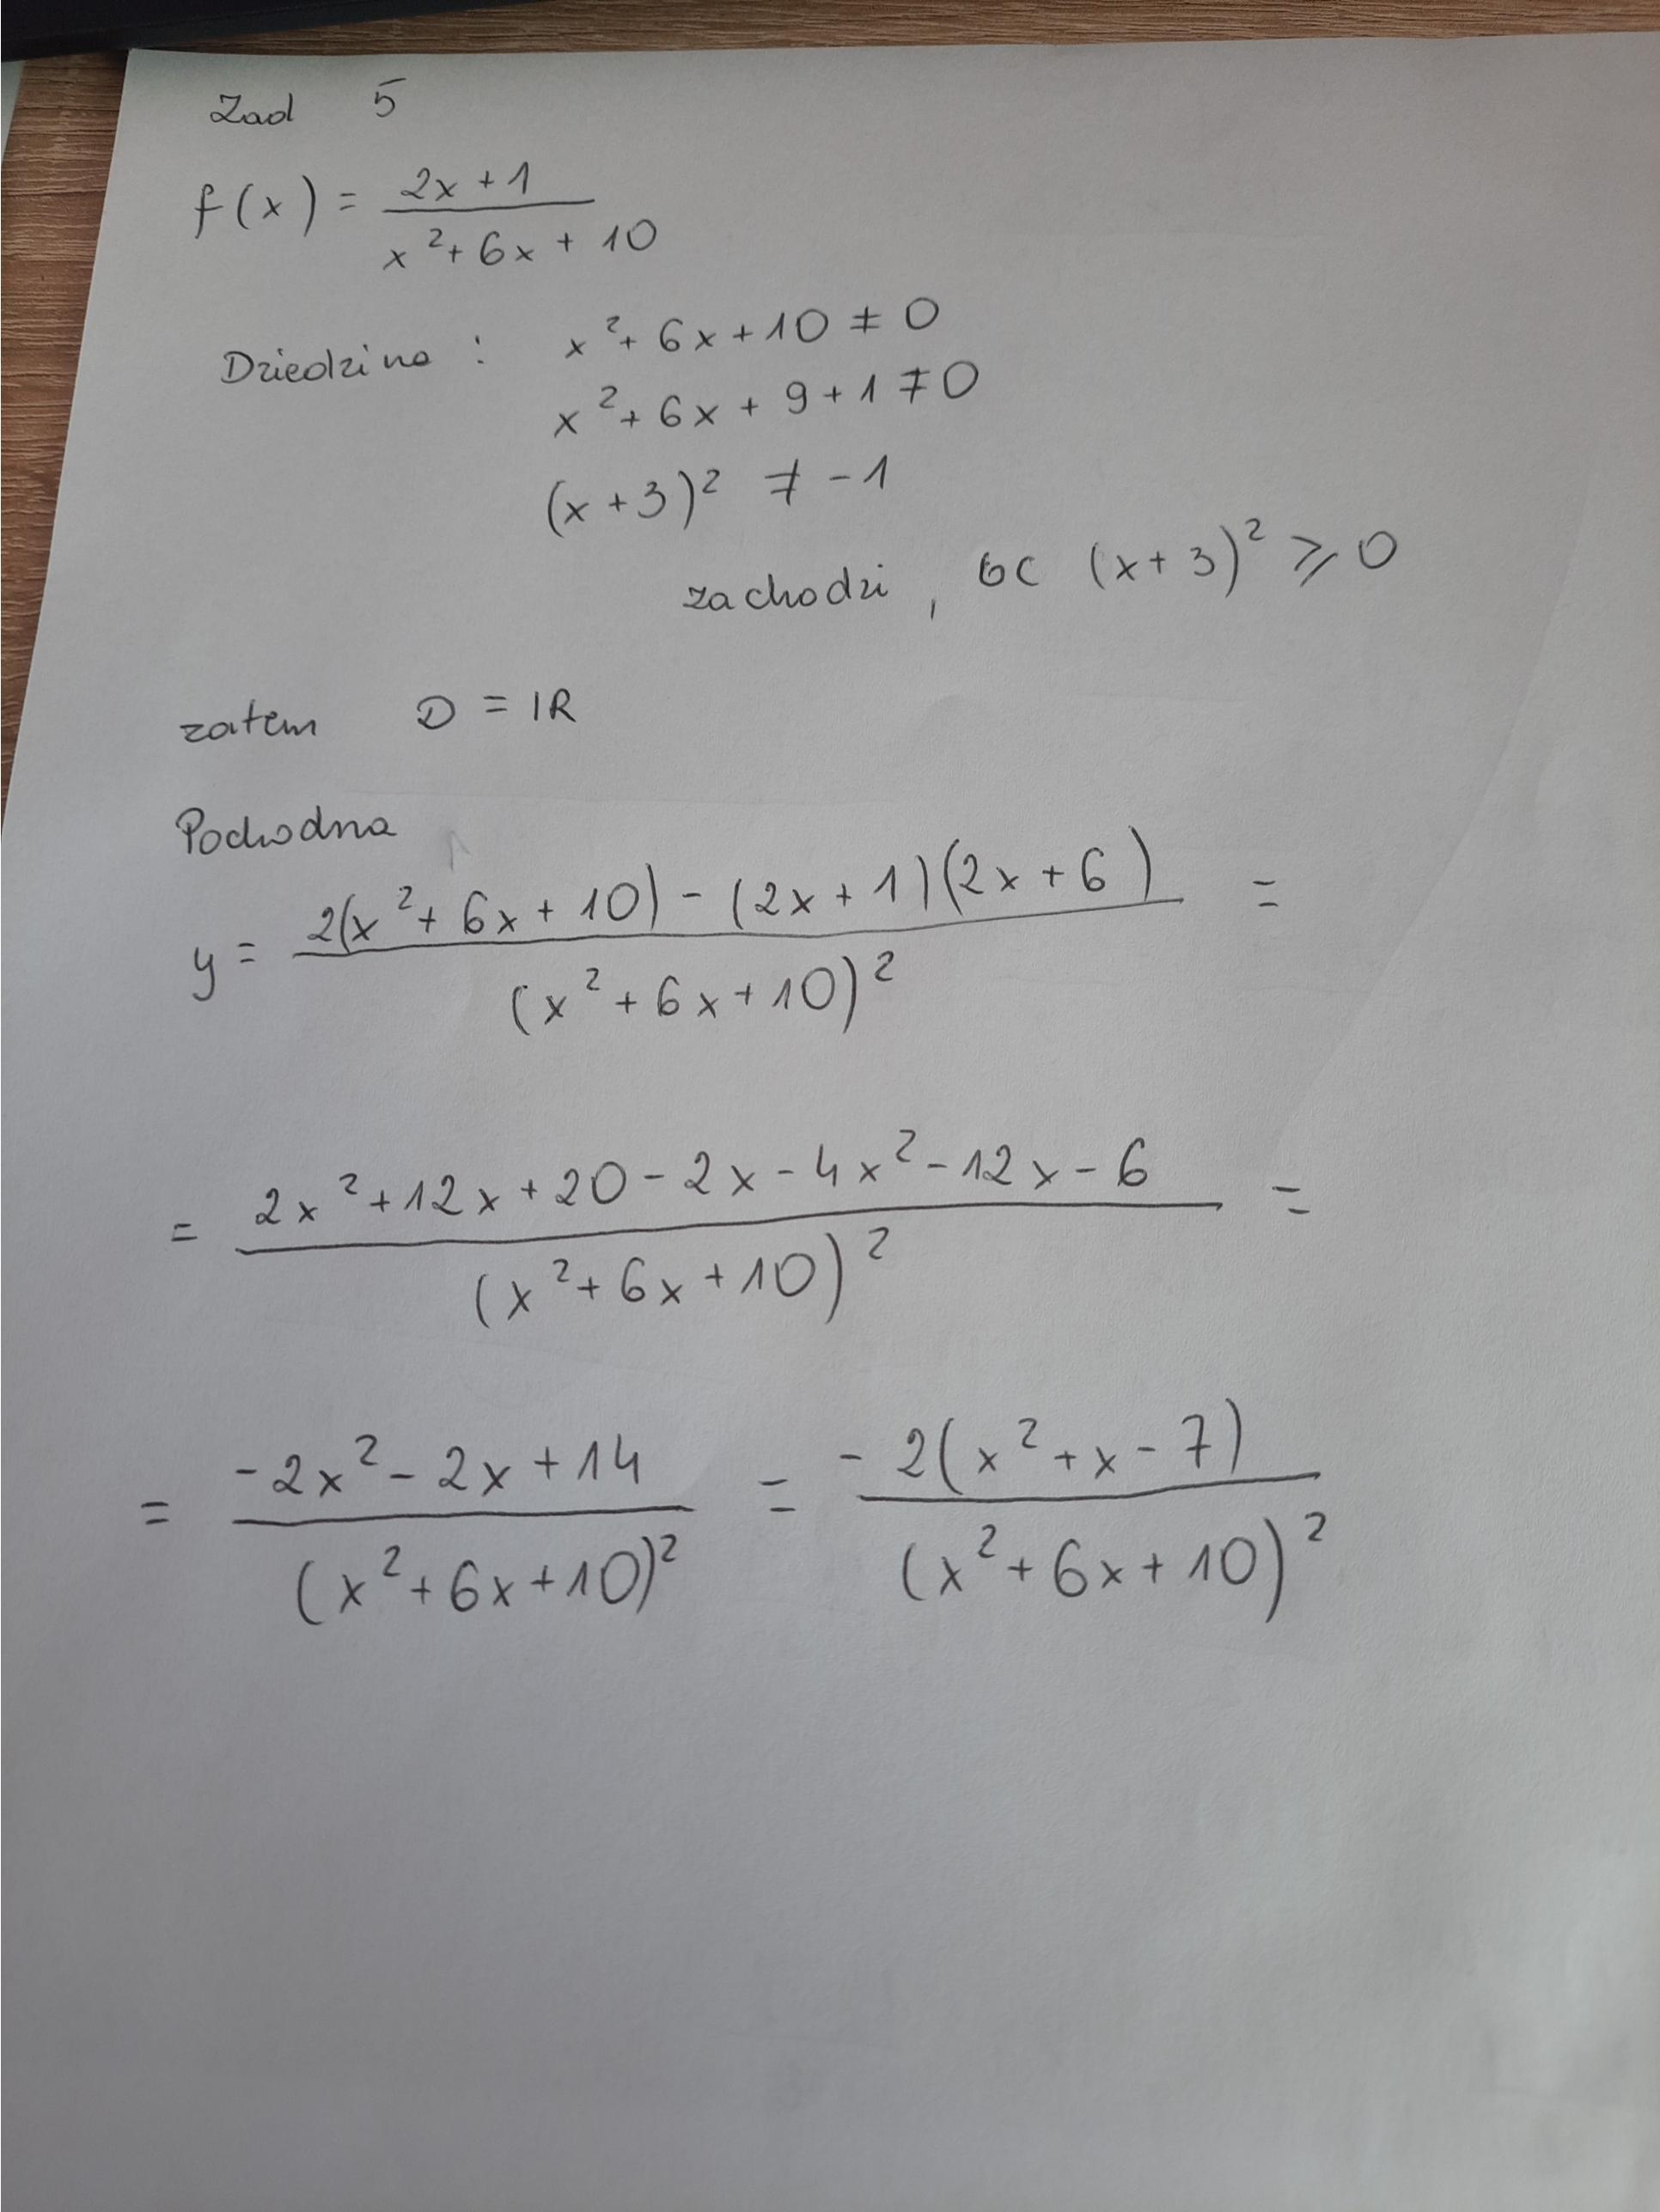 Zad 5
f(x) = \frac{2x+1}{x^2+6x+10}
Dziedzina : x^2+6x+10 ≠ 0
x^2+6x+9+1 ≠ 0
(x+3)^2 ≠ -1
zachodzi, bc (x+3)^2 ⩾ 0
zatem D = ℝ
Pochodna
y = \frac{2(x^2+6x+10)-(2x+1)(2x+6)}{(x^2+6x+10)^2} =
= \frac{2x^2+12x+20-2x-4x^2-12x-6}{(x^2+6x+10)^2} =
= \frac{-2x^2-2x+14}{(x^2+6x+10)^2} = \frac{-2(x^2+x-7)}{(x^2+6x+10)^2}